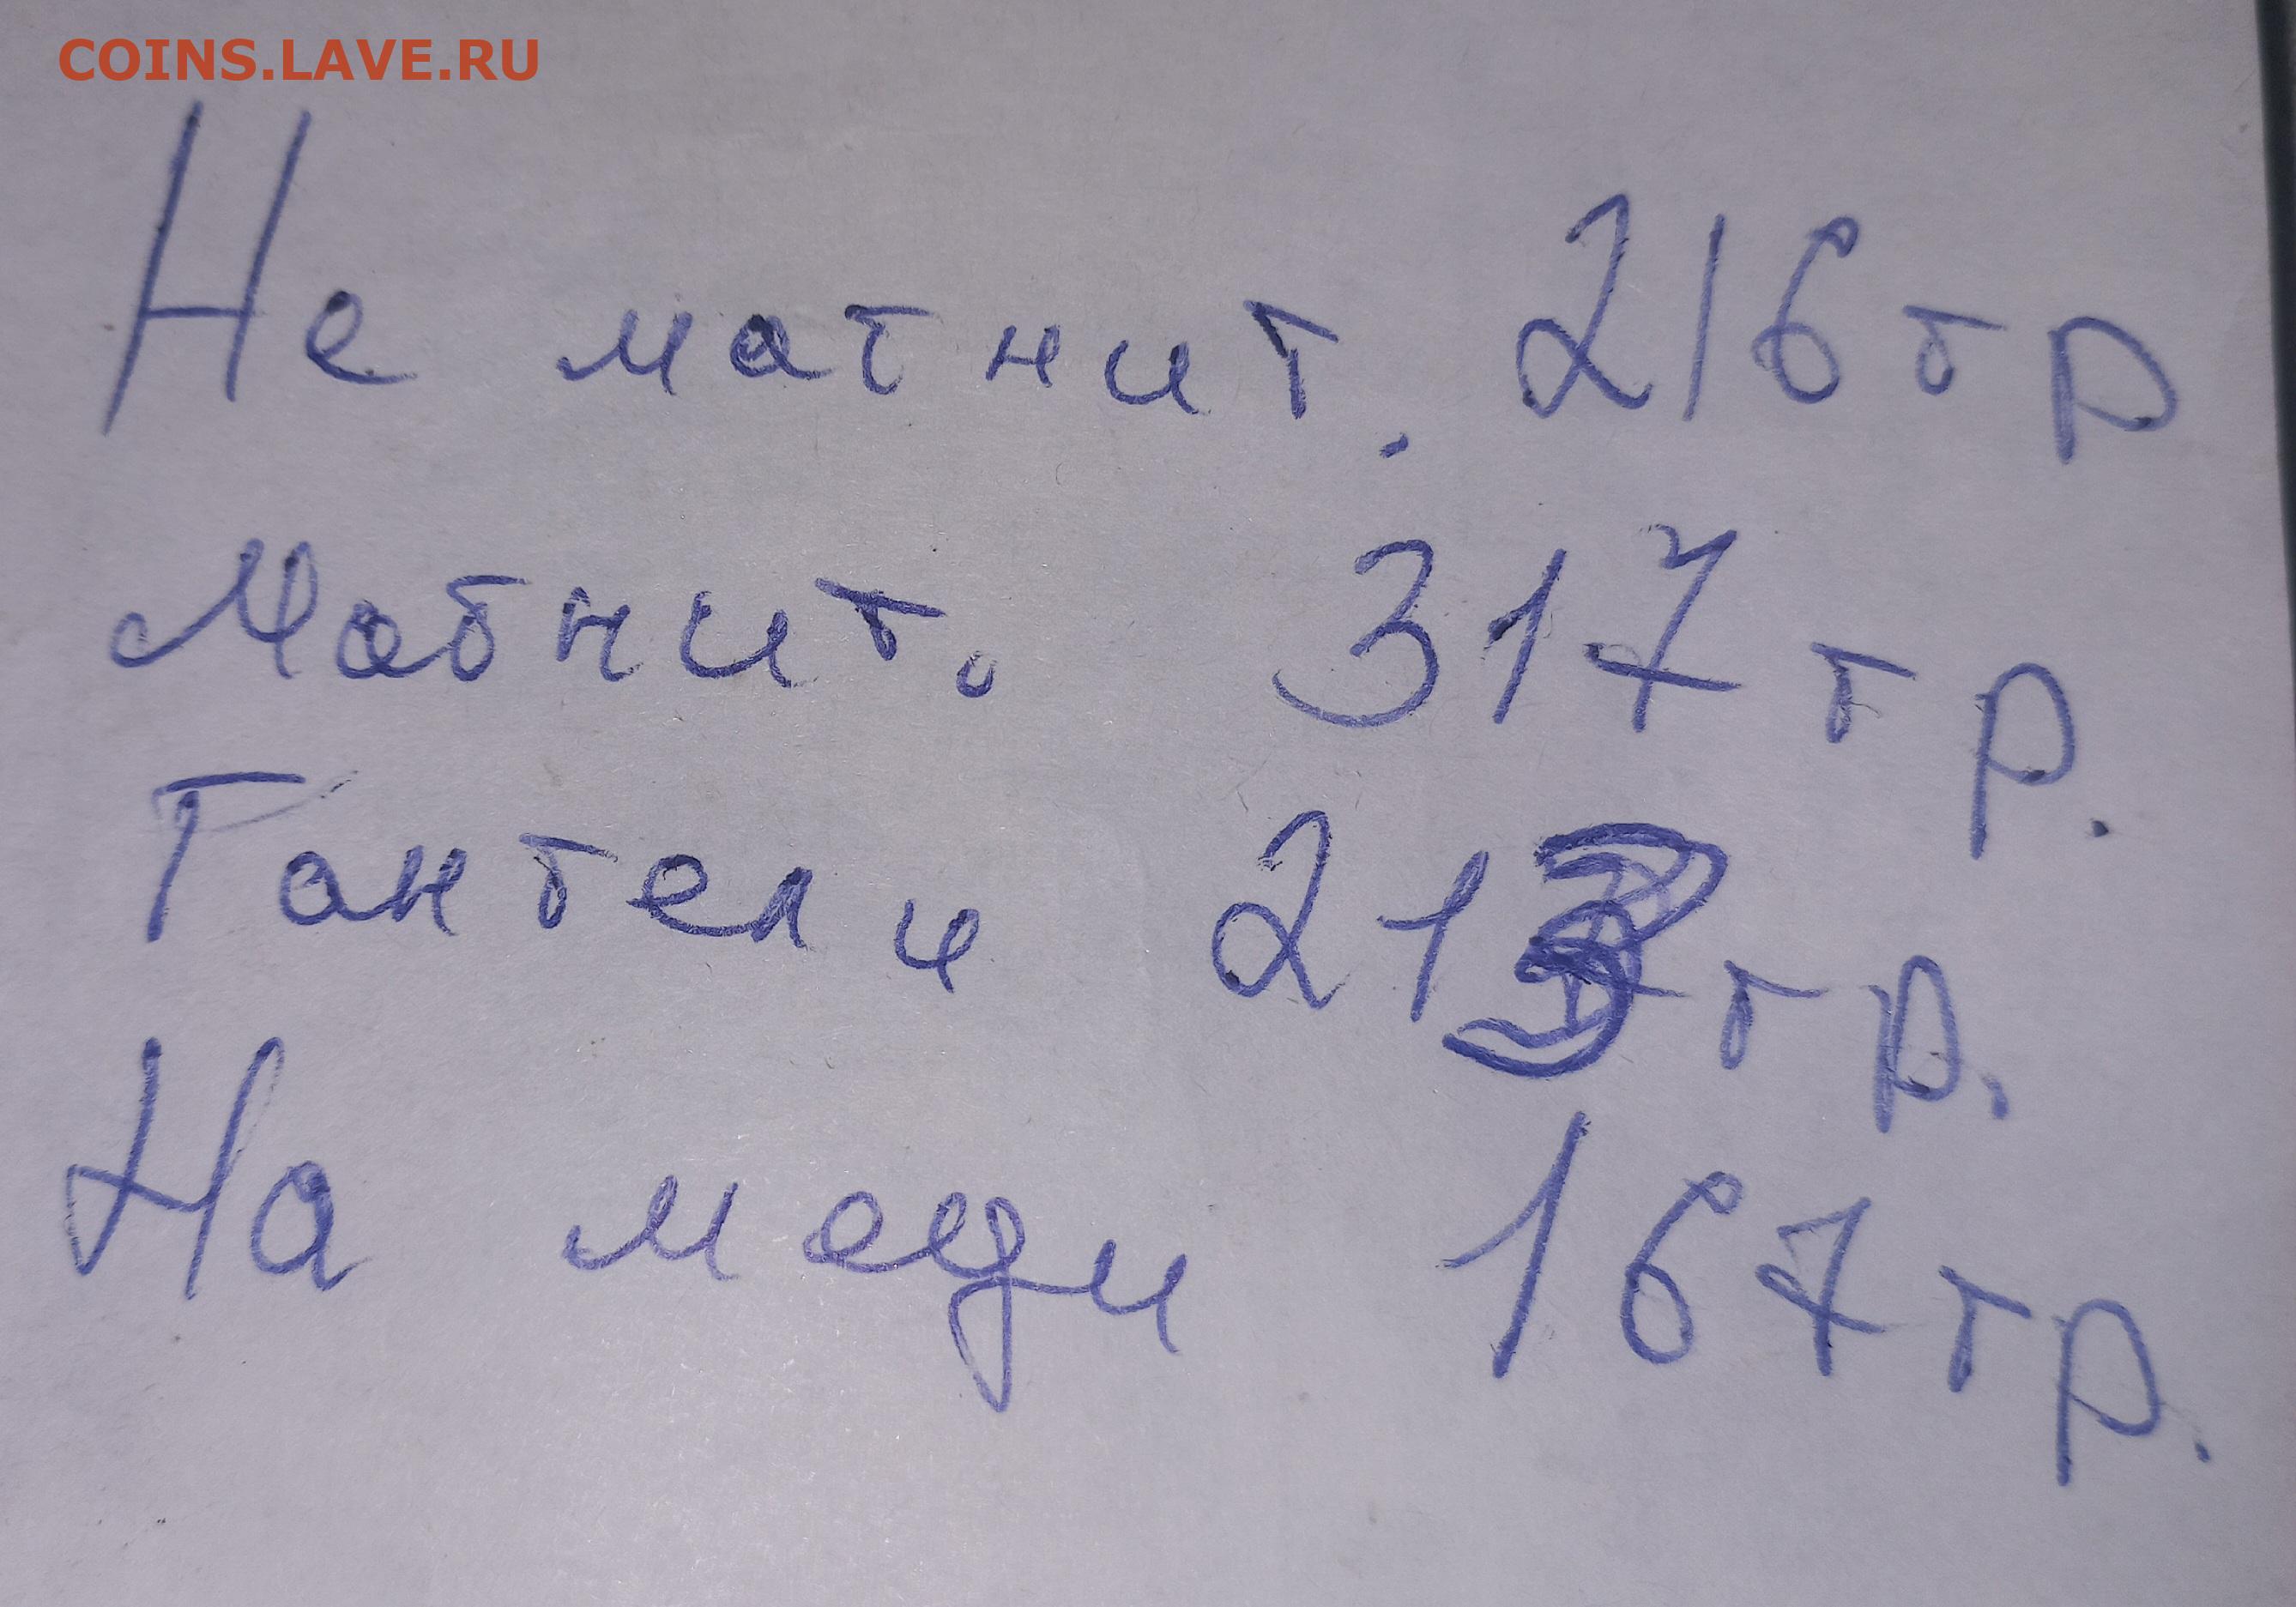 COINS.LAVE.RU
Не магнит. 216 гр
Магнит. 317 гр.
Гантели 213 гр.
На меди 167 гр.